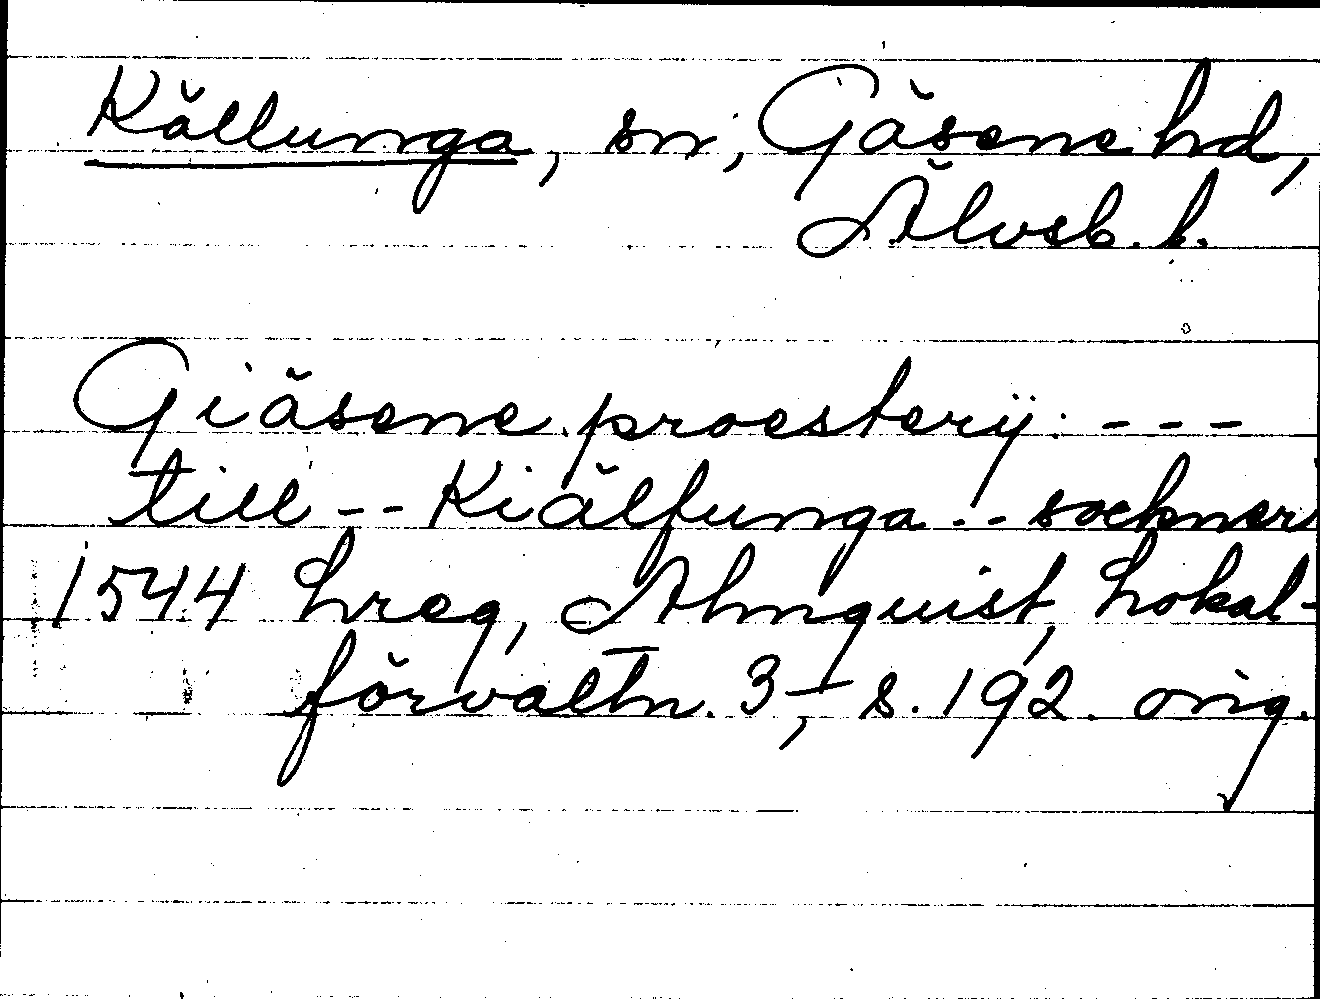 Källunga, sn, Gäsene hd,
Älvsb. l.
Giäsene proesterij: ---
till -- Kiälfunga -- sockner
1544 hreg, Almquist, Lokal-
förvaltn. 3, s. 192. orig.